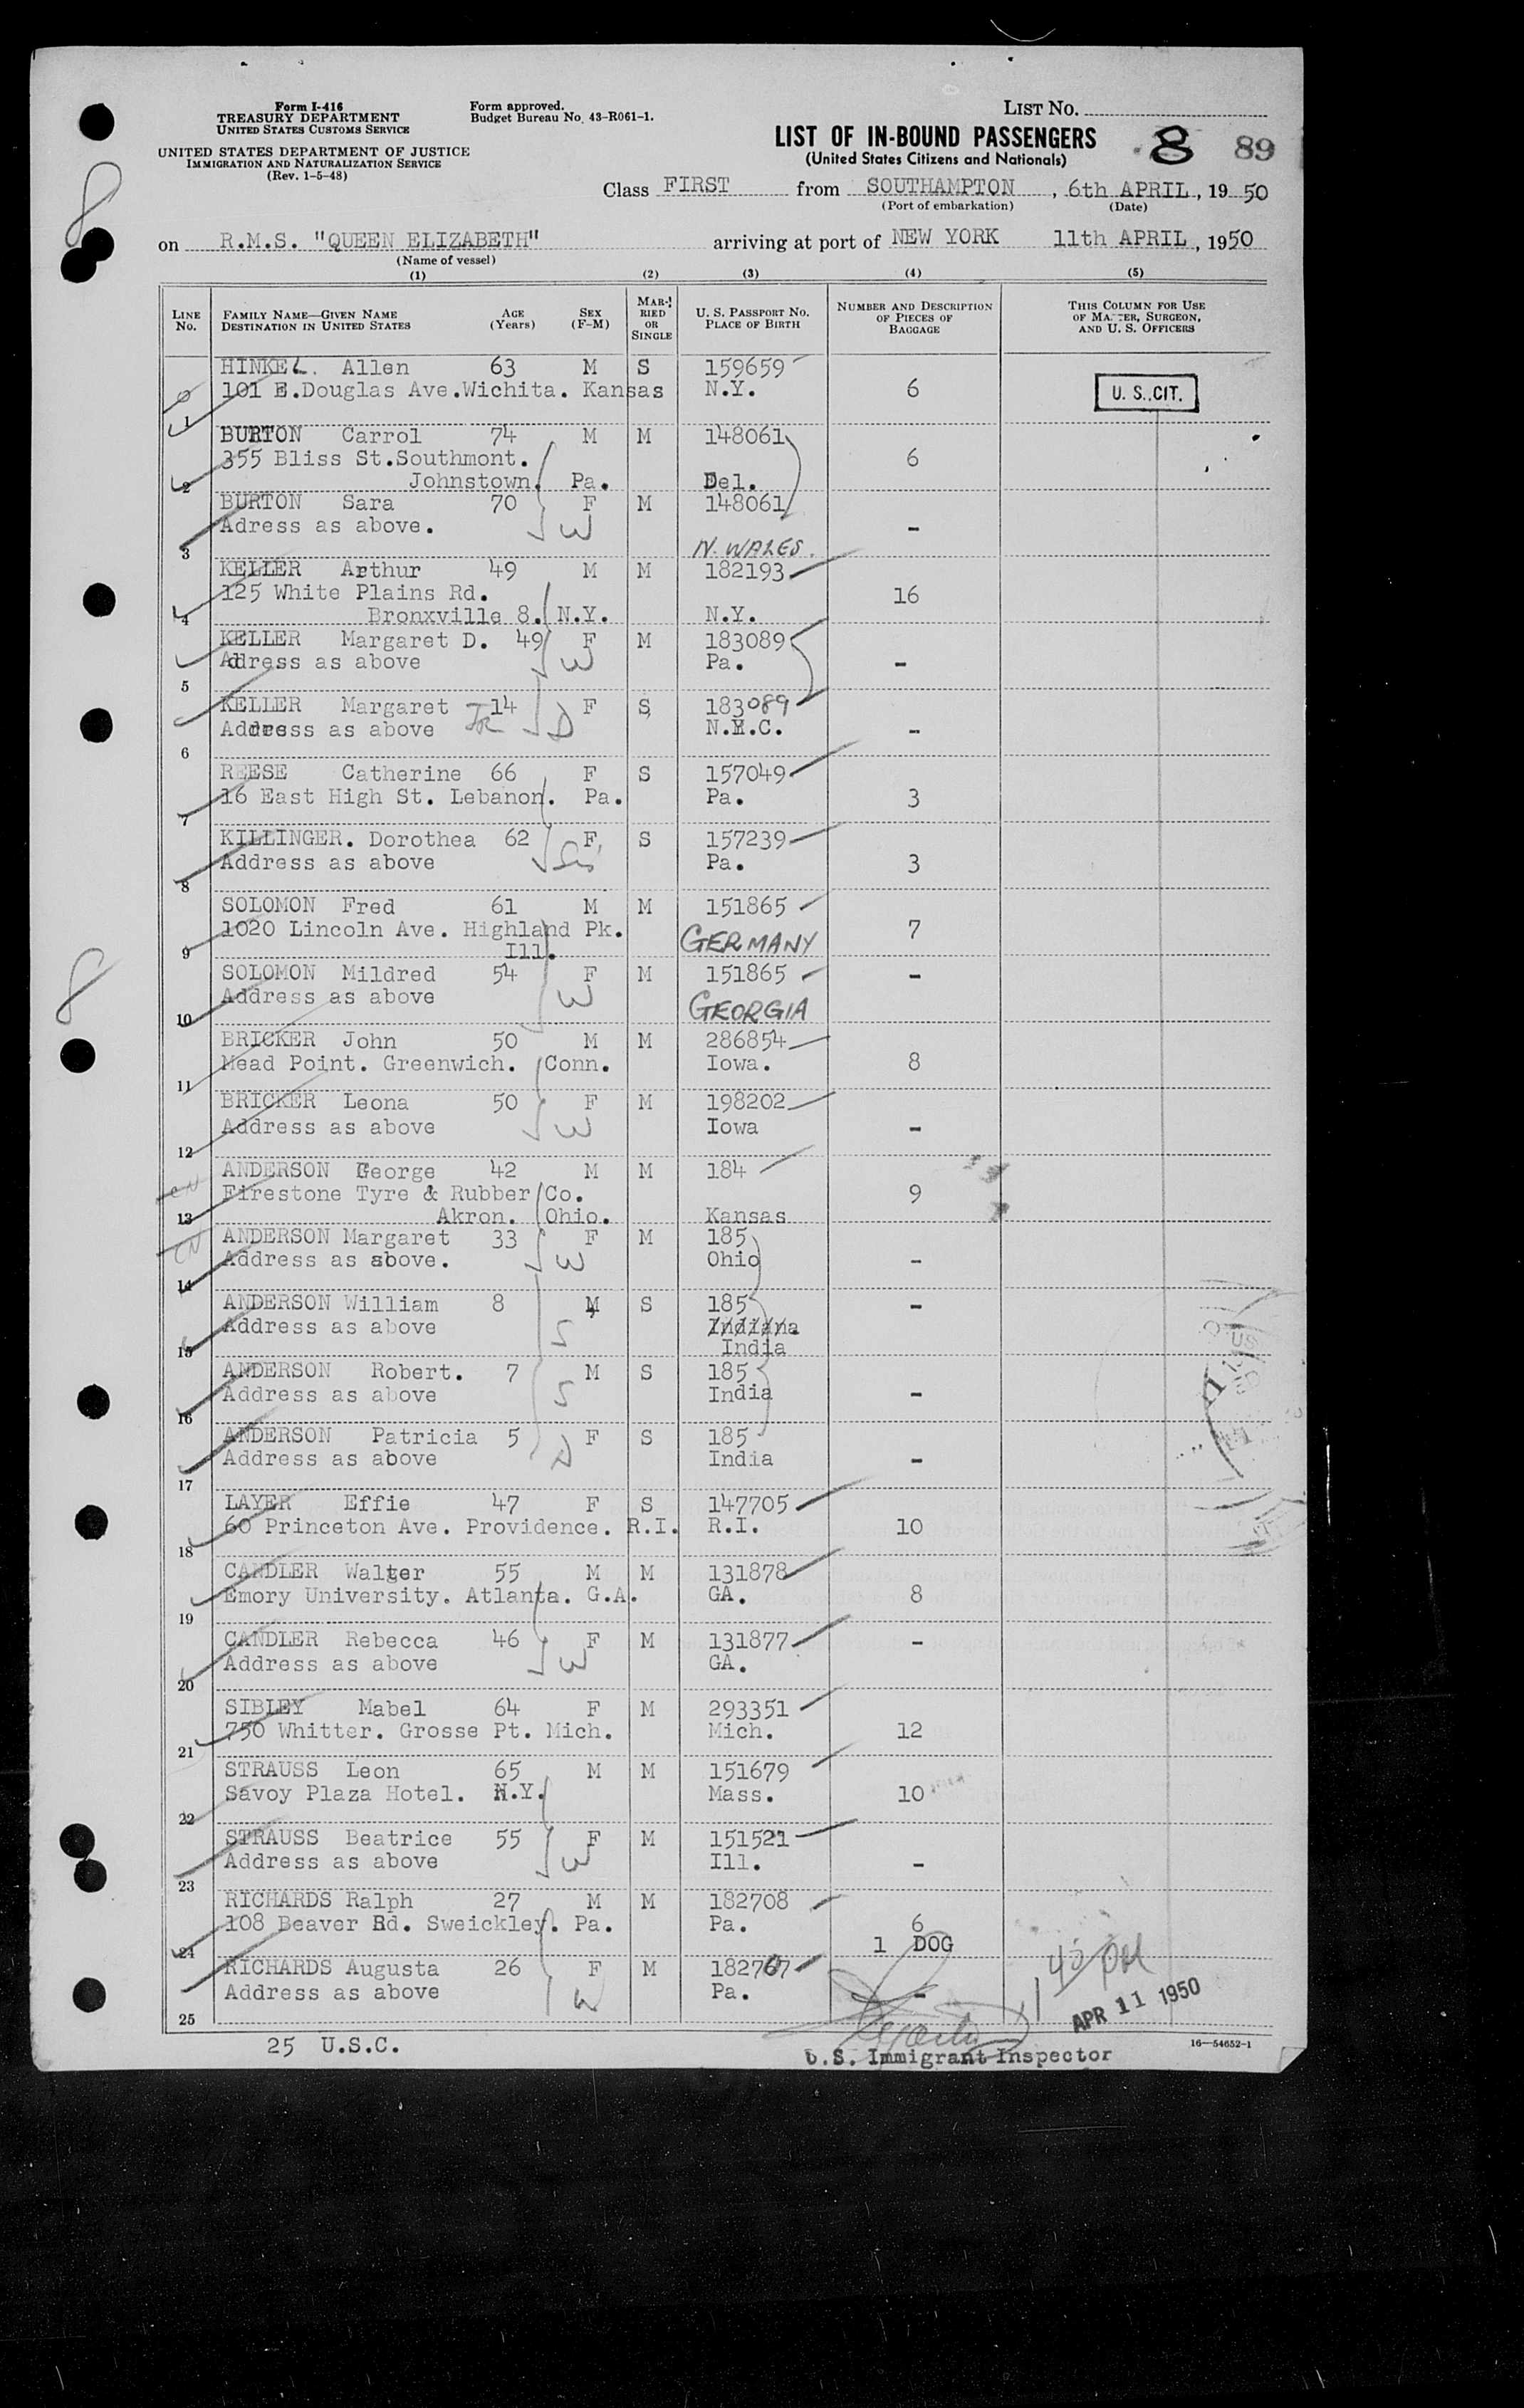 Form I-416
TREASURY DEPARTMENT
UNITED STATES CUSTOMS SERVICE
UNITED STATES DEPARTMENT OF JUSTICE
IMMIGRATION AND NATURALIZATION SERVICE
(Rev. 1-5-48)
Form approved.
Budget Bureau No. 43-R061-1.
LIST NO.
LIST OF IN-BOUND PASSENGERS 8 89
(United States Citizens and Nationals)
Class FIRST from SOUTHAMPTON, 6th APRIL, 19 50
(Port of embarkation) (Date)
on R.M.S. "QUEEN ELIZABETH" arriving at port of NEW YORK 11th APRIL, 1950
(Name of vessel)
(1) (2) (3) (4) (5)
LINE NO. FAMILY NAME—GIVEN NAME DESTINATION IN UNITED STATES AGE (Years) SEX (F-M) MARRIED OR SINGLE U. S. PASSPORT NO. PLACE OF BIRTH NUMBER AND DESCRIPTION OF PIECES OF BAGGAGE THIS COLUMN FOR USE OF MASTER, SURGEON, AND U. S. OFFICERS
HINKEL. Allen 63 M S 159659
101 E.Douglas Ave.Wichita. Kansas N.Y. 6 U. S. CIT.
1
BURTON Carrol 74 M M 148061
355 Bliss St.Southmont. 6
Johnstown. Pa. Del.
2
BURTON Sara 70 F M 148061
Adress as above. W -
3 N. WALES.
KELLER Arthur 49 M M 182193
125 White Plains Rd. 16
Bronxville 8. N.Y. N.Y.
4
KELLER Margaret D. 49 F M 183089
Address as above W Pa. -
5
KELLER Margaret JR 14 F S 183089
Address as above D N.Y.C. -
6
REESE Catherine 66 F S 157049
16 East High St. Lebanon. Pa. Pa. 3
7
KILLINGER. Dorothea 62 F S 157239
Address as above Sis Pa. 3
8
SOLOMON Fred 61 M M 151865
1020 Lincoln Ave. Highland Pk. GERMANY 7
Ill.
9
SOLOMON Mildred 54 F M 151865 -
Address as above W GEORGIA
10
BRICKER John 50 M M 286854
Mead Point. Greenwich. Conn. Iowa. 8
11
BRICKER Leona 50 F M 198202
Address as above W Iowa -
12
ANDERSON George 42 M M 184
Firestone Tyre & Rubber Co. 9
Akron. Ohio. Kansas
13
ANDERSON Margaret 33 F M 185
Address as above. W Ohio -
14
ANDERSON William 8 M S 185 -
Address as above S Indiana
India
15
ANDERSON Robert. 7 M S 185
Address as above S India -
16
ANDERSON Patricia 5 F S 185
Address as above D India -
17
LAYER Effie 47 F S 147705
60 Princeton Ave. Providence. R.I. R.I. 10
18
CANDLER Walter 55 M M 131878
Emory University. Atlanta. G.A. GA. 8
19
CANDLER Rebecca 46 F M 131877 -
Address as above W GA.
20
SIBLEY Mabel 64 F M 293351
750 Whitter. Grosse Pt. Mich. Mich. 12
21
STRAUSS Leon 65 M M 151679
Savoy Plaza Hotel. N.Y. Mass. 10
22
STRAUSS Beatrice 55 F M 151521
Address as above W Ill. -
23
RICHARDS Ralph 27 M M 182708
108 Beaver Rd. Sweickley. Pa. Pa. 6
24 1 DOG
RICHARDS Augusta 26 F M 182707
Address as above W Pa. -
25 APR 11 1950
25 U.S.C.
U.S. Immigrant Inspector
16—54652-1